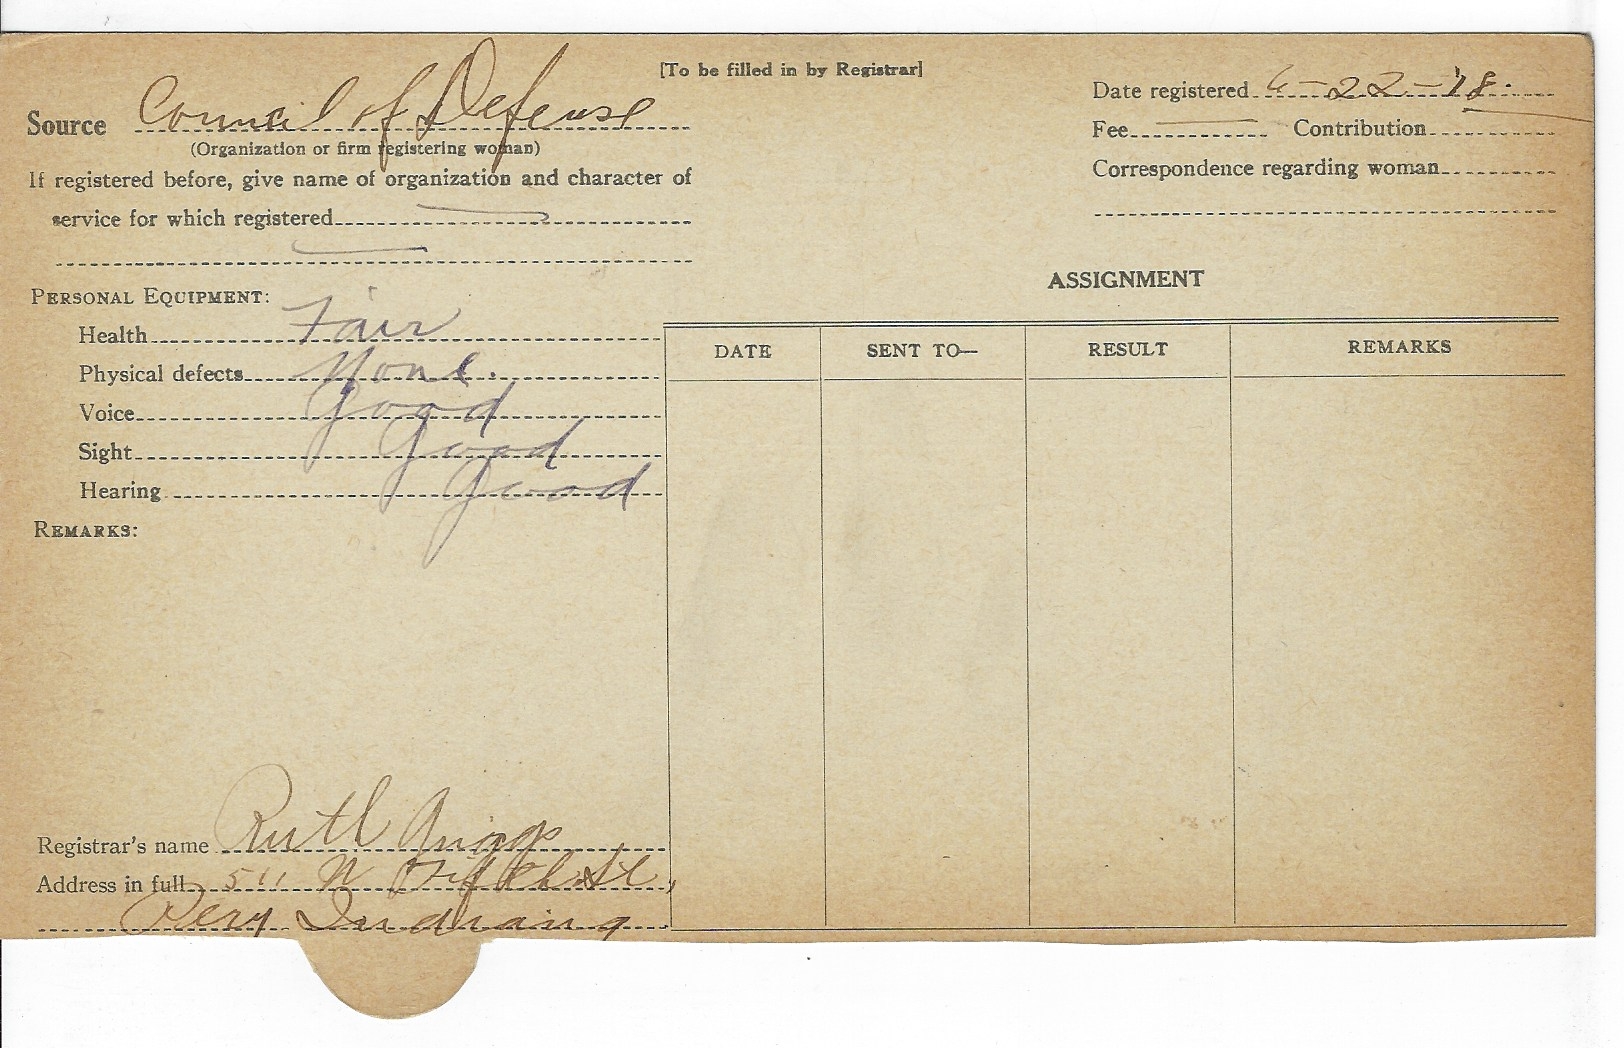 [To be filled in by Registrar]
Source Council of Defense
(Organization or firm registering woman)
If registered before, give name of organization and character of
service for which registered
Date registered 6-22-18.
Fee Contribution
Correspondence regarding woman
PERSONAL EQUIPMENT:
Health Fair
Physical defects None.
Voice Good
Sight Good
Hearing Good
REMARKS:
ASSIGNMENT
DATE SENT TO— RESULT REMARKS
Registrar's name Ruth Griggs
Address in full 511 N Fifth St,
Indiana